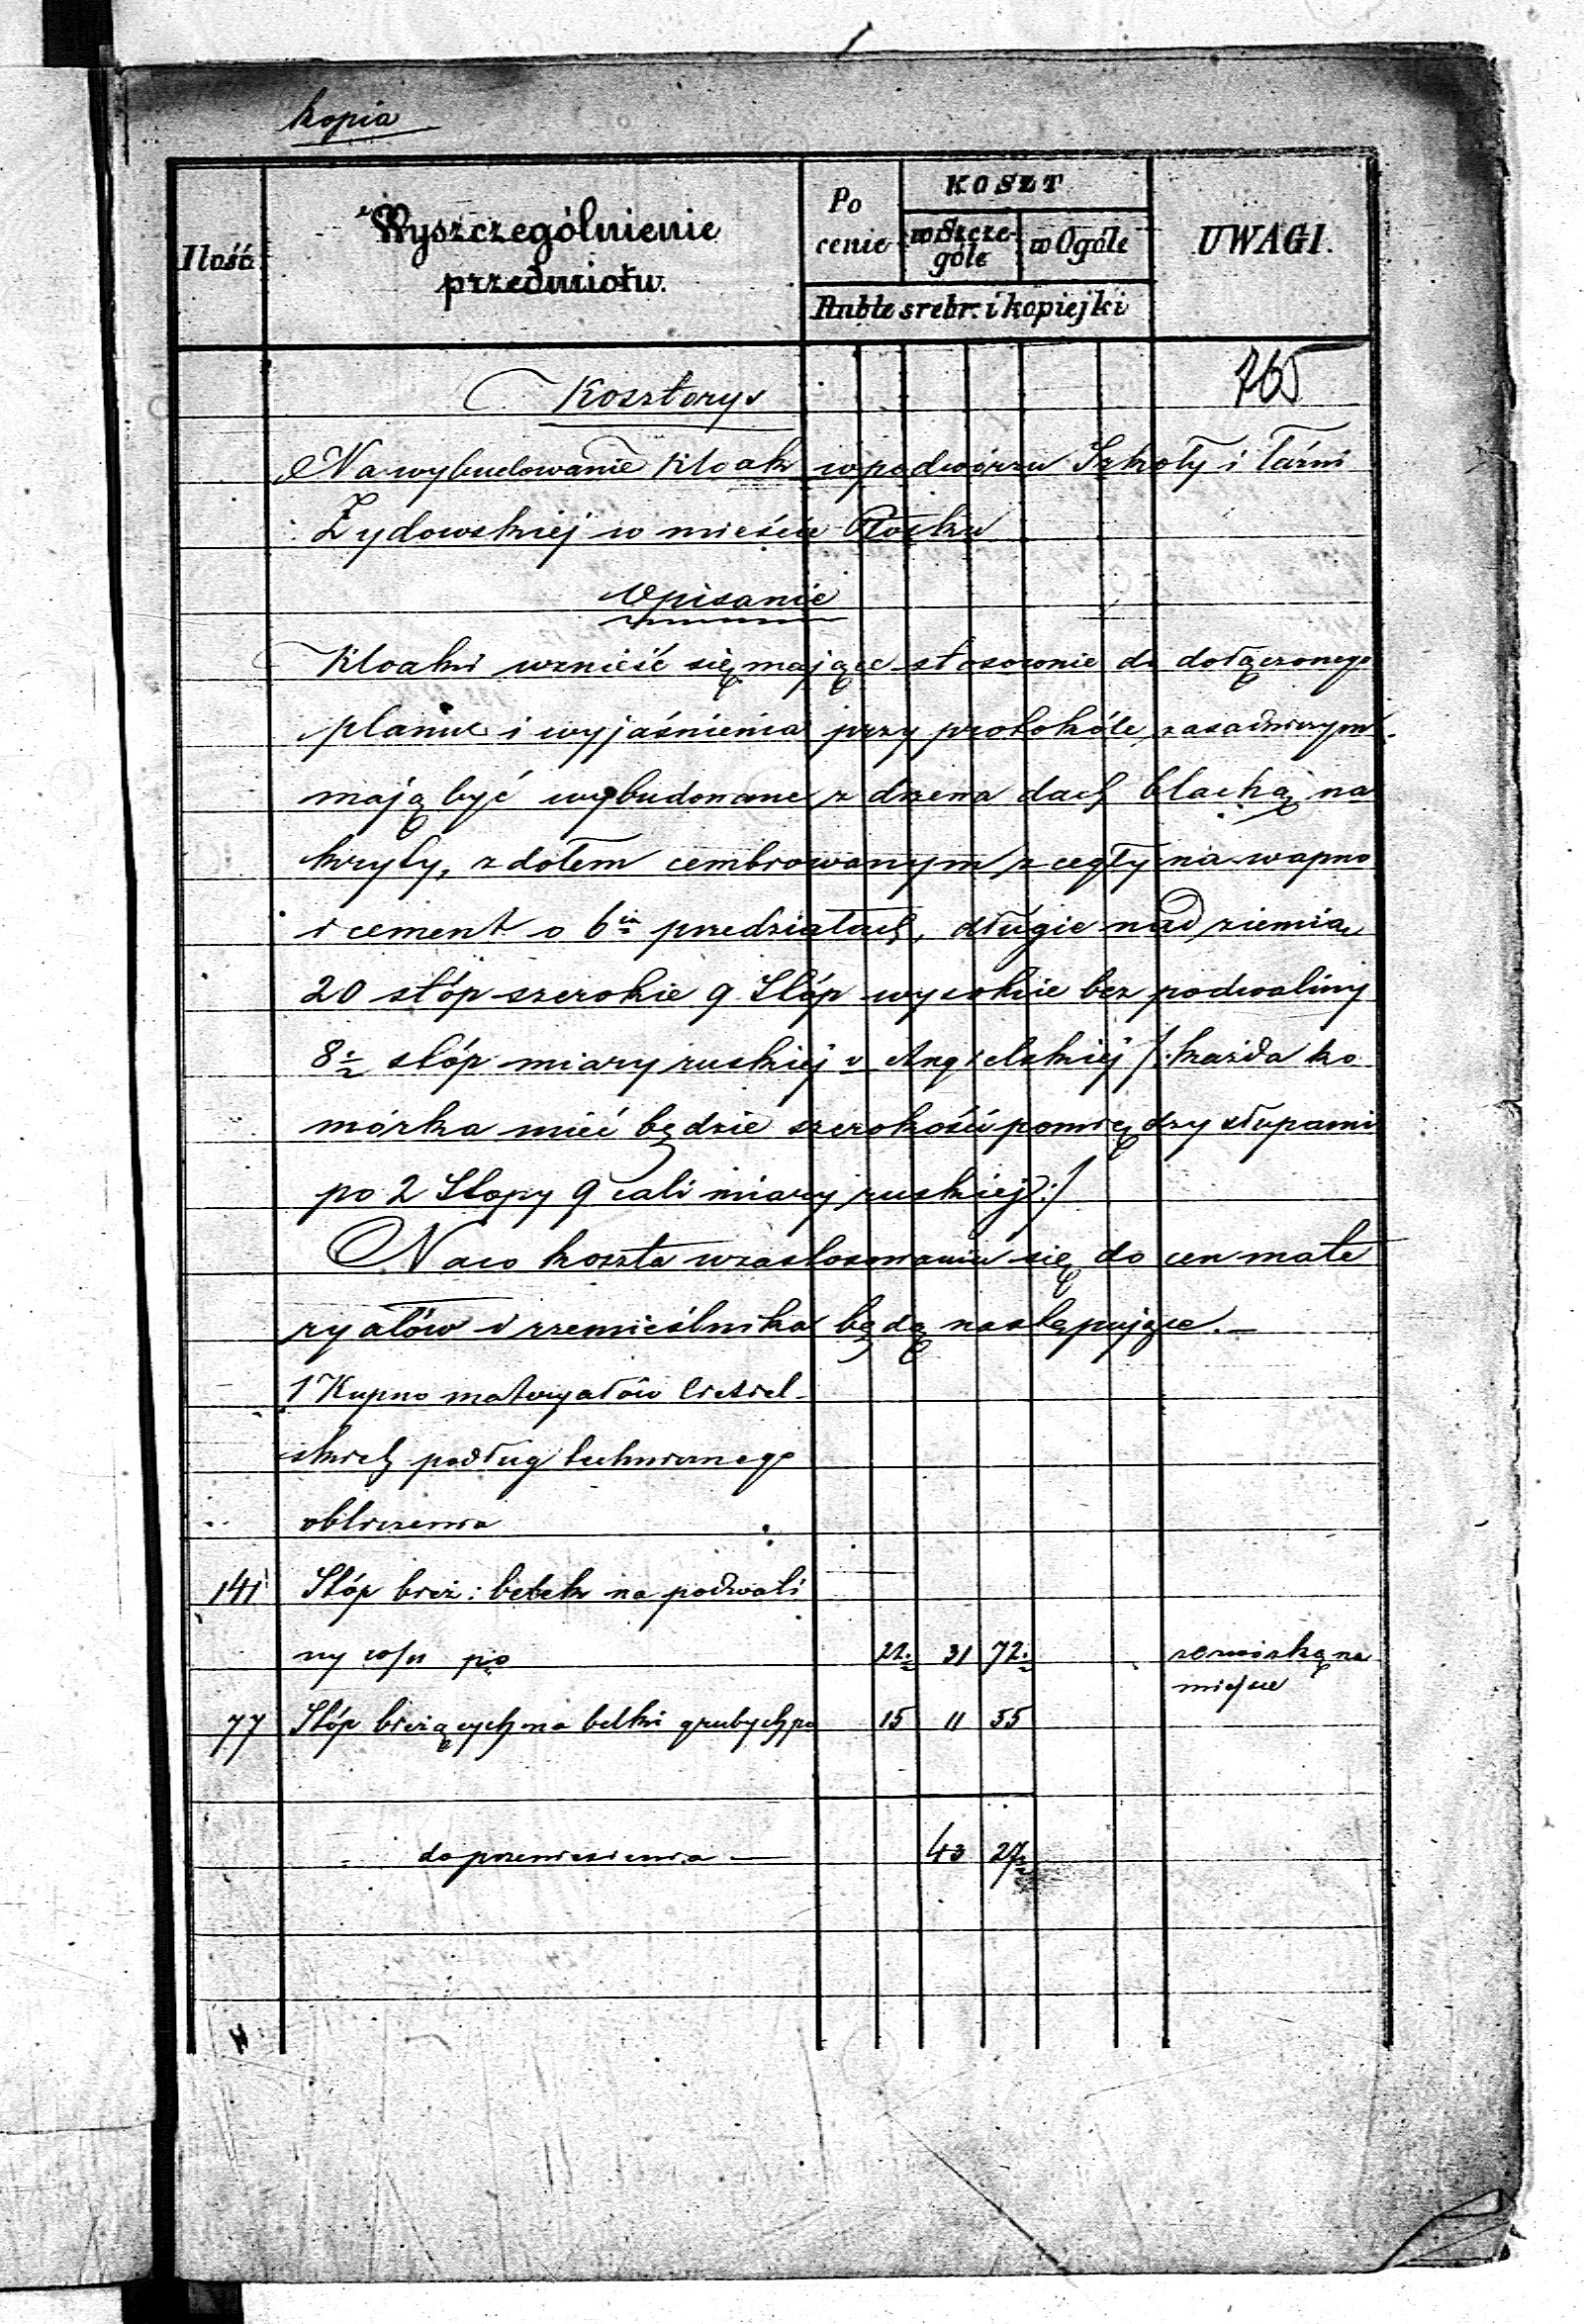 kopia
Ilość
Wyszczególnienie
przedmiotu.
Po
cenie
KOSZT
w Szcze-
góle
w Ogóle
UWAGI.
Ruble srebr. i kopiejki
765
Kosztorys
Na wybudowanie Kloak w podwórzu Szkoły i Łaźni
Żydowskiej w mieście Płocku
Opisanie
Kloaki wznieść się mające stosownie do dołączonego
planu i wyjaśnienia przy protokóle zasadniczym
mają być wybudowane z drzewa dach blachą na
kryty, z dołem cembrowanym z cegły na wapno
i cement o 6iu przedziałach, długie nad ziemią
20 stóp szerokie 9 Stóp wysokie bez podwaliny
8½ stóp miary ruskiej v Angielskiej /: każda ko
mórka mieć będzie szerokości pomiędzy słupami
po 2 Stopy 9 cali miary ruskiej :/
Na co koszta w zastosowaniu się do cen mate
ryałów i rzemieślnika będą następujące. —
1 Kupno materyałów Ciesiel-
skich podług technicznego
obliczenia
141 Stóp bież: belek na podwali
ny po 22½ 31 72½ zwózką na
miejsce
77 Stóp bieżących na belki grubych po 15 11 55
do przeniesienia — 43 27½